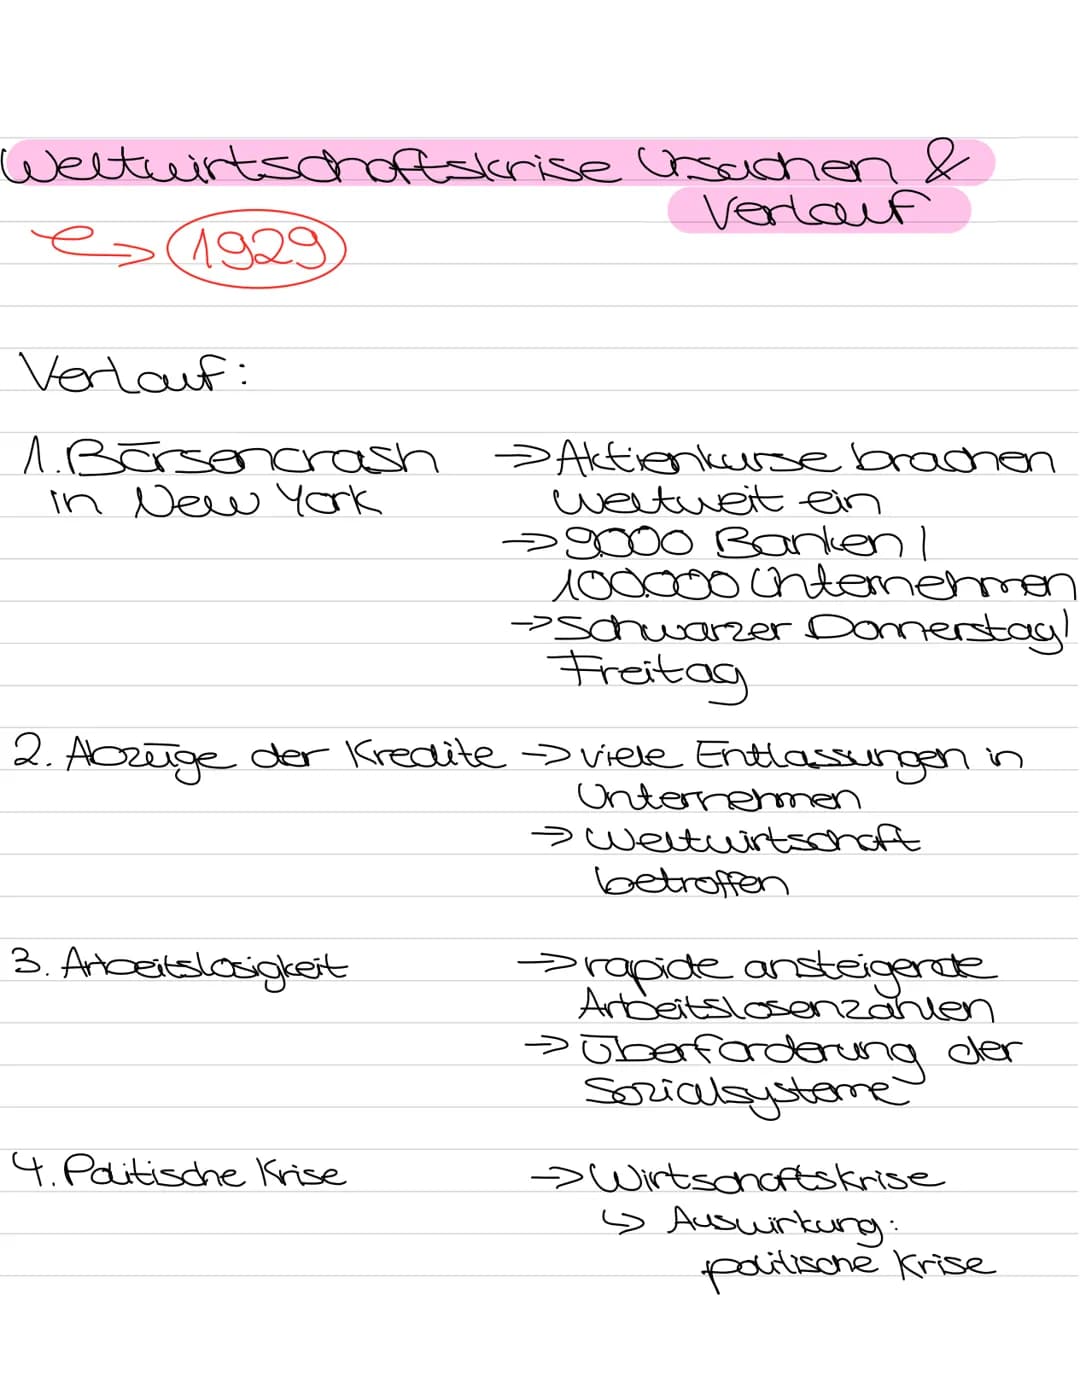 Weltwirtschaftskrise Ursachen &
Verlauf
↳ 1929
Verlauf:
1. Börsencrash
in New York
→ Aktienkurse brachen
weltweit ein
→ 9.000 Banken /
100.000 Unternehmen
→ Schwarzer Donnerstag/
Freitag
2. Abzüge der Kredite → viele Entlassungen in
Unternehmen
→ Weltwirtschaft
betroffen
3. Arbeitslosigkeit
→ rapide ansteigende
Arbeitslosenzahlen
→ Überforderung der
Sozialsysteme
4. Politische Krise
→ Wirtschaftskrise
↳ Auswirkung:
politische Krise